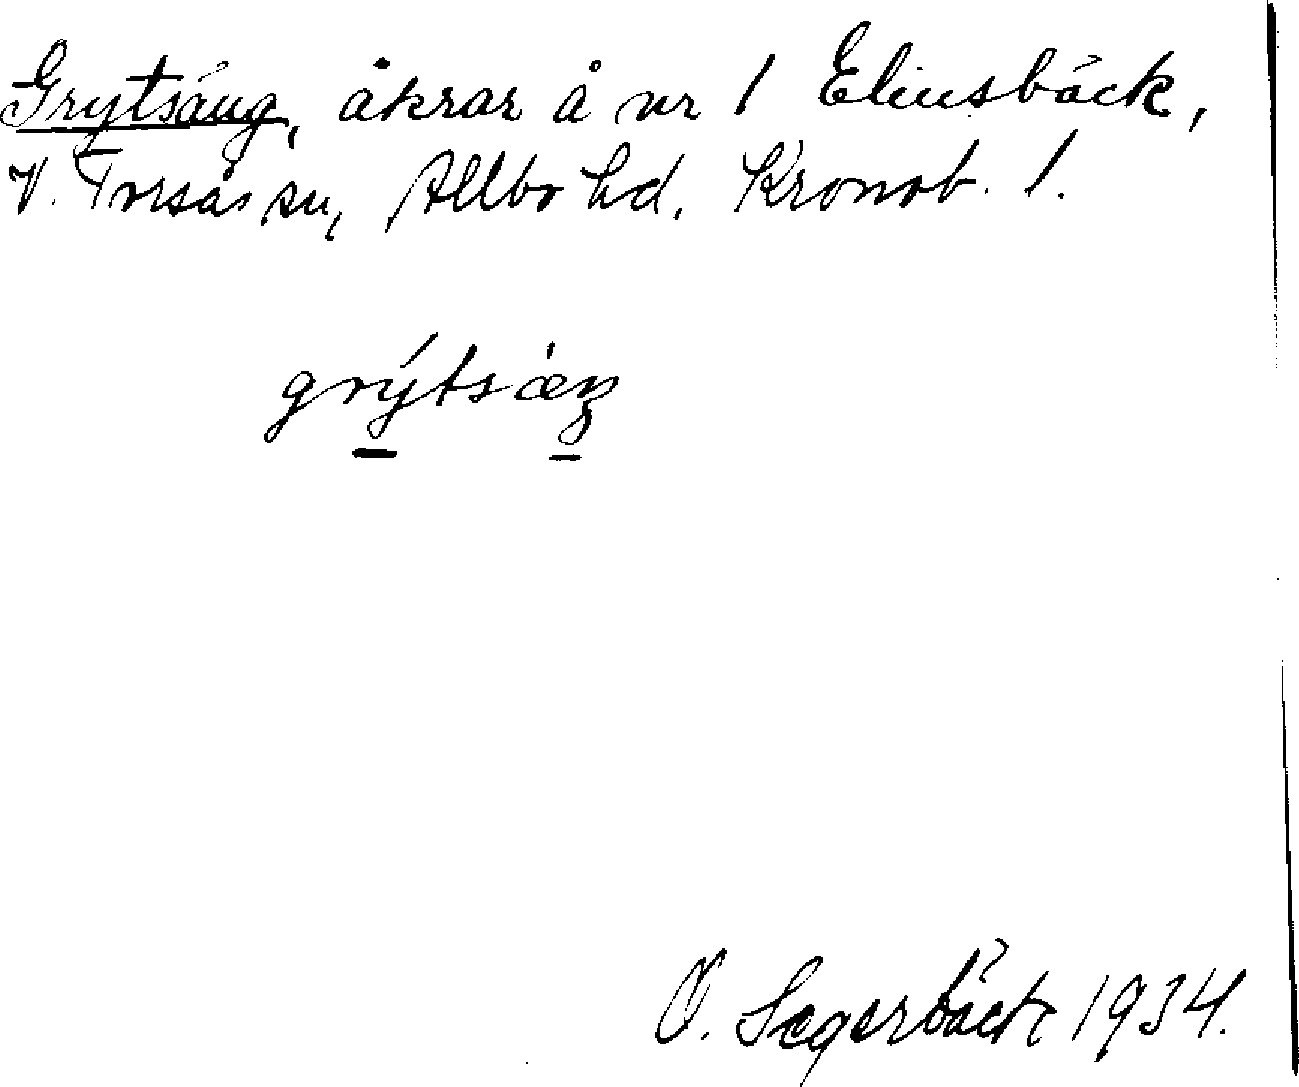 Grytsäng, åkrar å nr 1 Elinsbäck,
V. Torsås sn, Allbo hd. Kronob. l.
grýtsæŋ
O. Segerbäck 1934.